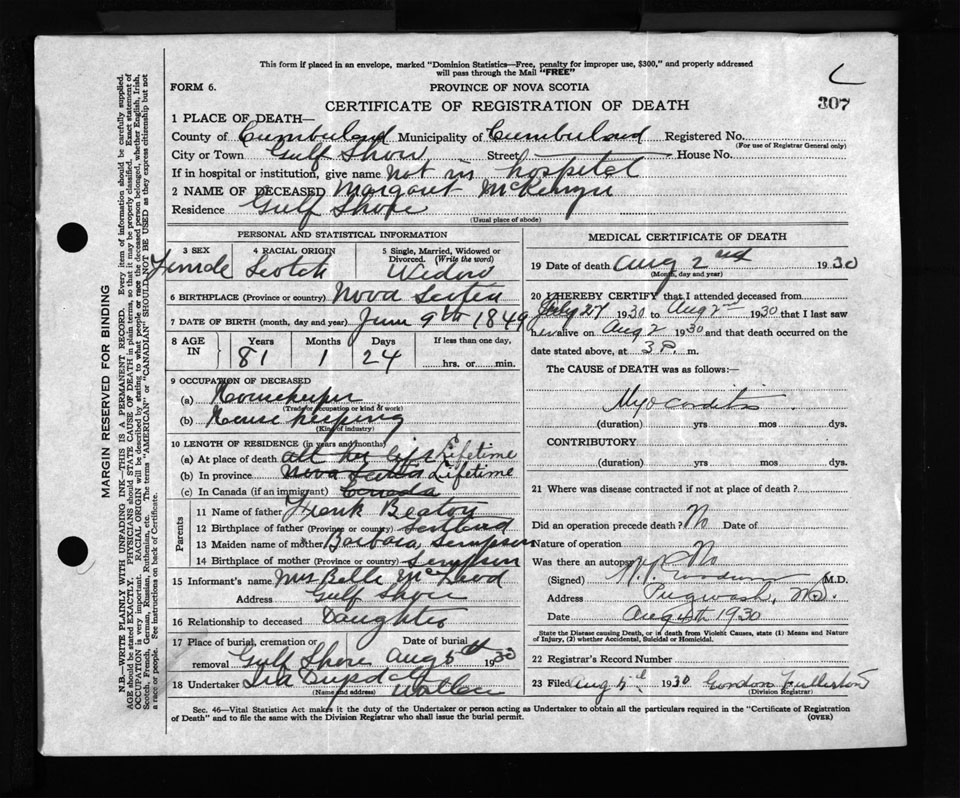 This form if placed in an envelope, marked "Dominion Statistics—Free, penalty for improper use, $300," and properly addressed
will pass through the Mail "FREE"
FORM 6.
PROVINCE OF NOVA SCOTIA
307
CERTIFICATE OF REGISTRATION OF DEATH
1 PLACE OF DEATH—
County of Cumberland Municipality of Cumberland Registered No.
(For use of Registrar General only)
City or Town Gulf Shore Street House No.
If in hospital or institution, give name not in hospital
2 NAME OF DECEASED Margaret
Residence Gulf Shore
(Usual place of abode)
PERSONAL AND STATISTICAL INFORMATION
3 SEX 4 RACIAL ORIGIN 5 Single, Married, Widowed or Divorced. (Write the word)
Female Scotch Widow
6 BIRTHPLACE (Province or country) Nova Scotia
7 DATE OF BIRTH (month, day and year) June 9th 1849
8 AGE IN Years Months Days If less than one day,
81 1 24 hrs. or min.
9 OCCUPATION OF DECEASED
(a) Housekeeper
(Trade occupation or kind of work)
(b) House keeping
(Kind of industry)
10 LENGTH OF RESIDENCE (in years and months)
(a) At place of death all her life Lifetime
(b) In province Nova Scotia Lifetime
(c) In Canada (if an immigrant) Canada
Parents
11 Name of father Frank Beaton
12 Birthplace of father (Province or country) Scotland
13 Maiden name of mother Barbara Sempson
14 Birthplace of mother (Province or country) Sempson
15 Informant's name Mrs Bella McLeod
Address Gulf Shore
16 Relationship to deceased Daughter
17 Place of burial, cremation or removal Gulf Shore Date of burial Aug 5th 1930
18 Undertaker Wallace
(Name and address)
MEDICAL CERTIFICATE OF DEATH
19 Date of death Aug 2nd 1930
(Month, day and year)
20 I HEREBY CERTIFY that I attended deceased from
July 27 1930 to Aug 2nd 1930 that I last saw
her alive on Aug 2 1930 and that death occurred on
date stated above, at 3 P. m.
The CAUSE of DEATH was as follows:—
Myocarditis
(duration) yrs mos. dys.
CONTRIBUTORY
(duration) yrs mos. dys.
21 Where was disease contracted if not at place of death?
Did an operation precede death? No Date of
Nature of operation
Was there an autopsy? No
(Signed) M.D.
Address Pugwash, NS.
Date Aug 4th 1930
State the Disease causing Death, or in death from Violent Causes, state (1) Means and Nature
of Injury, (2) whether Accidental, Suicidal or Homicidal.
22 Registrar's Record Number
23 Filed Aug 1930 Gordon Fullerton
(Division Registrar)
Sec. 46—Vital Statistics Act makes it the duty of the Undertaker or person acting as Undertaker to obtain all the particulars required in the "Certificate of Registration
of Death" and to file the same with the Division Registrar who shall issue the burial permit.
(OVER)
MARGIN RESERVED FOR BINDING
N.B.—WRITE PLAINLY WITH UNFADING INK—THIS IS A PERMANENT RECORD. Every item of information should be carefully supplied.
AGE should be stated EXACTLY. PHYSICIANS should STATE CAUSE OF DEATH in plain terms, so that it may be properly classified. Exact statement of
OCCUPATION is very important. RACIAL ORIGIN will be described by stating to what people or race the deceased person belonged, whether English, Irish,
Scotch, French, German, Russian, Ruthenian, etc. The terms "AMERICAN" or "CANADIAN" SHOULD NOT BE USED as they express citizenship but not
a race or people. See instructions on back of Certificate.